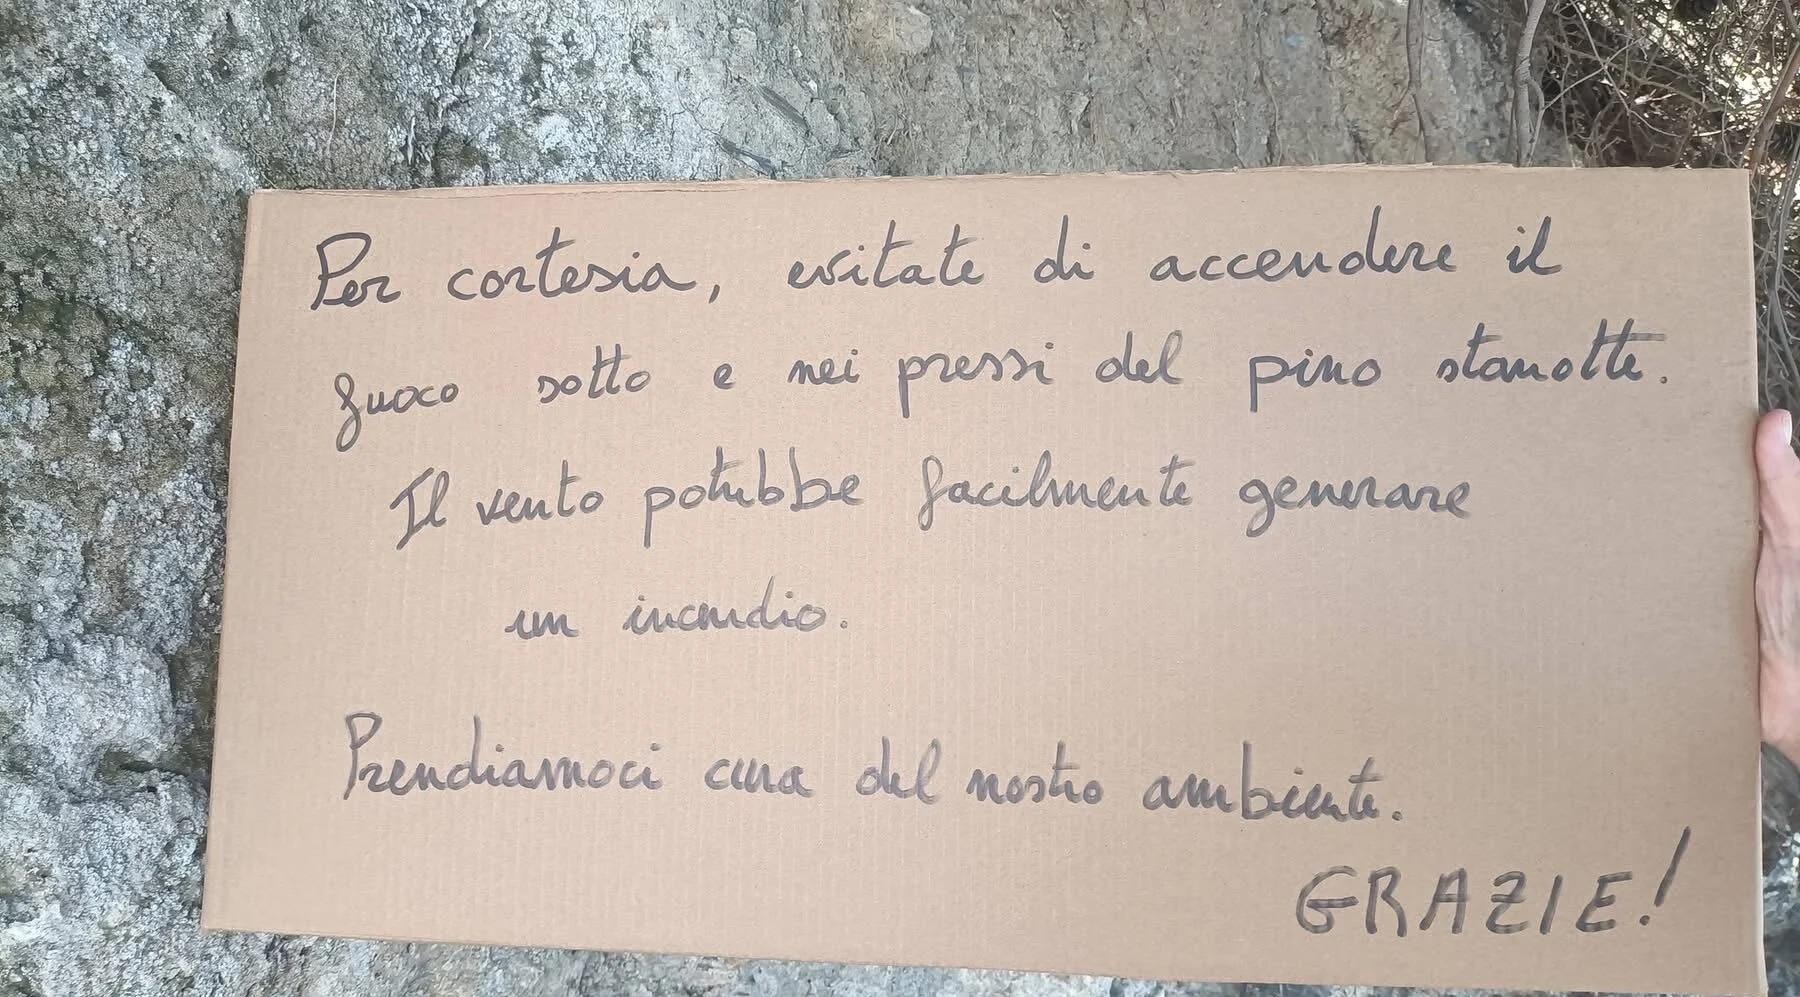 Per cortesia, evitate di accendere il
fuoco sotto e nei pressi del pino stanotte.
Il vento potrebbe facilmente generare
un incendio.
Prendiamoci cura del nostro ambiente.
GRAZIE!